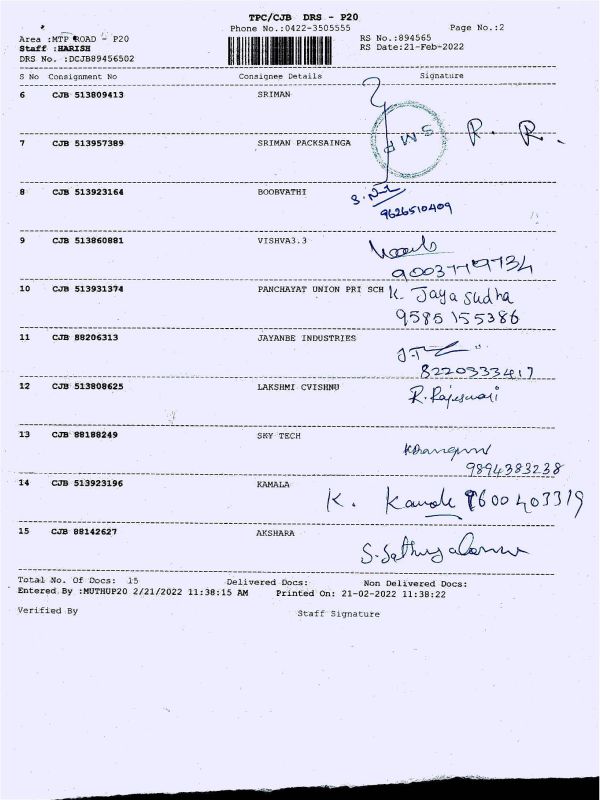 TPC/CJB DRS - P20
Phone No.:0422-3505555 Page No.:2
Area :MTP ROAD - P20 RS No.:894565
Staff :HARISH RS Date:21-Feb-2022
DRS No. :DCJB89456502
S No Consignment No Consignee Details Signature
6 CJB 513809413 SRIMAN
7 CJB 513957389 SRIMAN PACKSAINGA
SMP R. R.
8 CJB 513923164 BOOBVATHI
9626510409
9 CJB 513860881 VISHVA3.3
10 CJB 513931374 PANCHAYAT UNION PRI SCH K. Jayasudha
9585155386
11 CJB 88206313 JAYANBE INDUSTRIES
8220333417
12 CJB 513808625 LAKSHMI CVISHNU R. Rajeswari
13 CJB 88188249 SKY TECH
9894383238
14 CJB 513923196 KAMALA K. Kamale 9600403319
15 CJB 88142627 AKSHARA
Total No. Of Docs: 15 Delivered Docs: Non Delivered Docs:
Entered By :MUTHUP20 2/21/2022 11:38:15 AM Printed On: 21-02-2022 11:38:22
Verified By Staff Signature